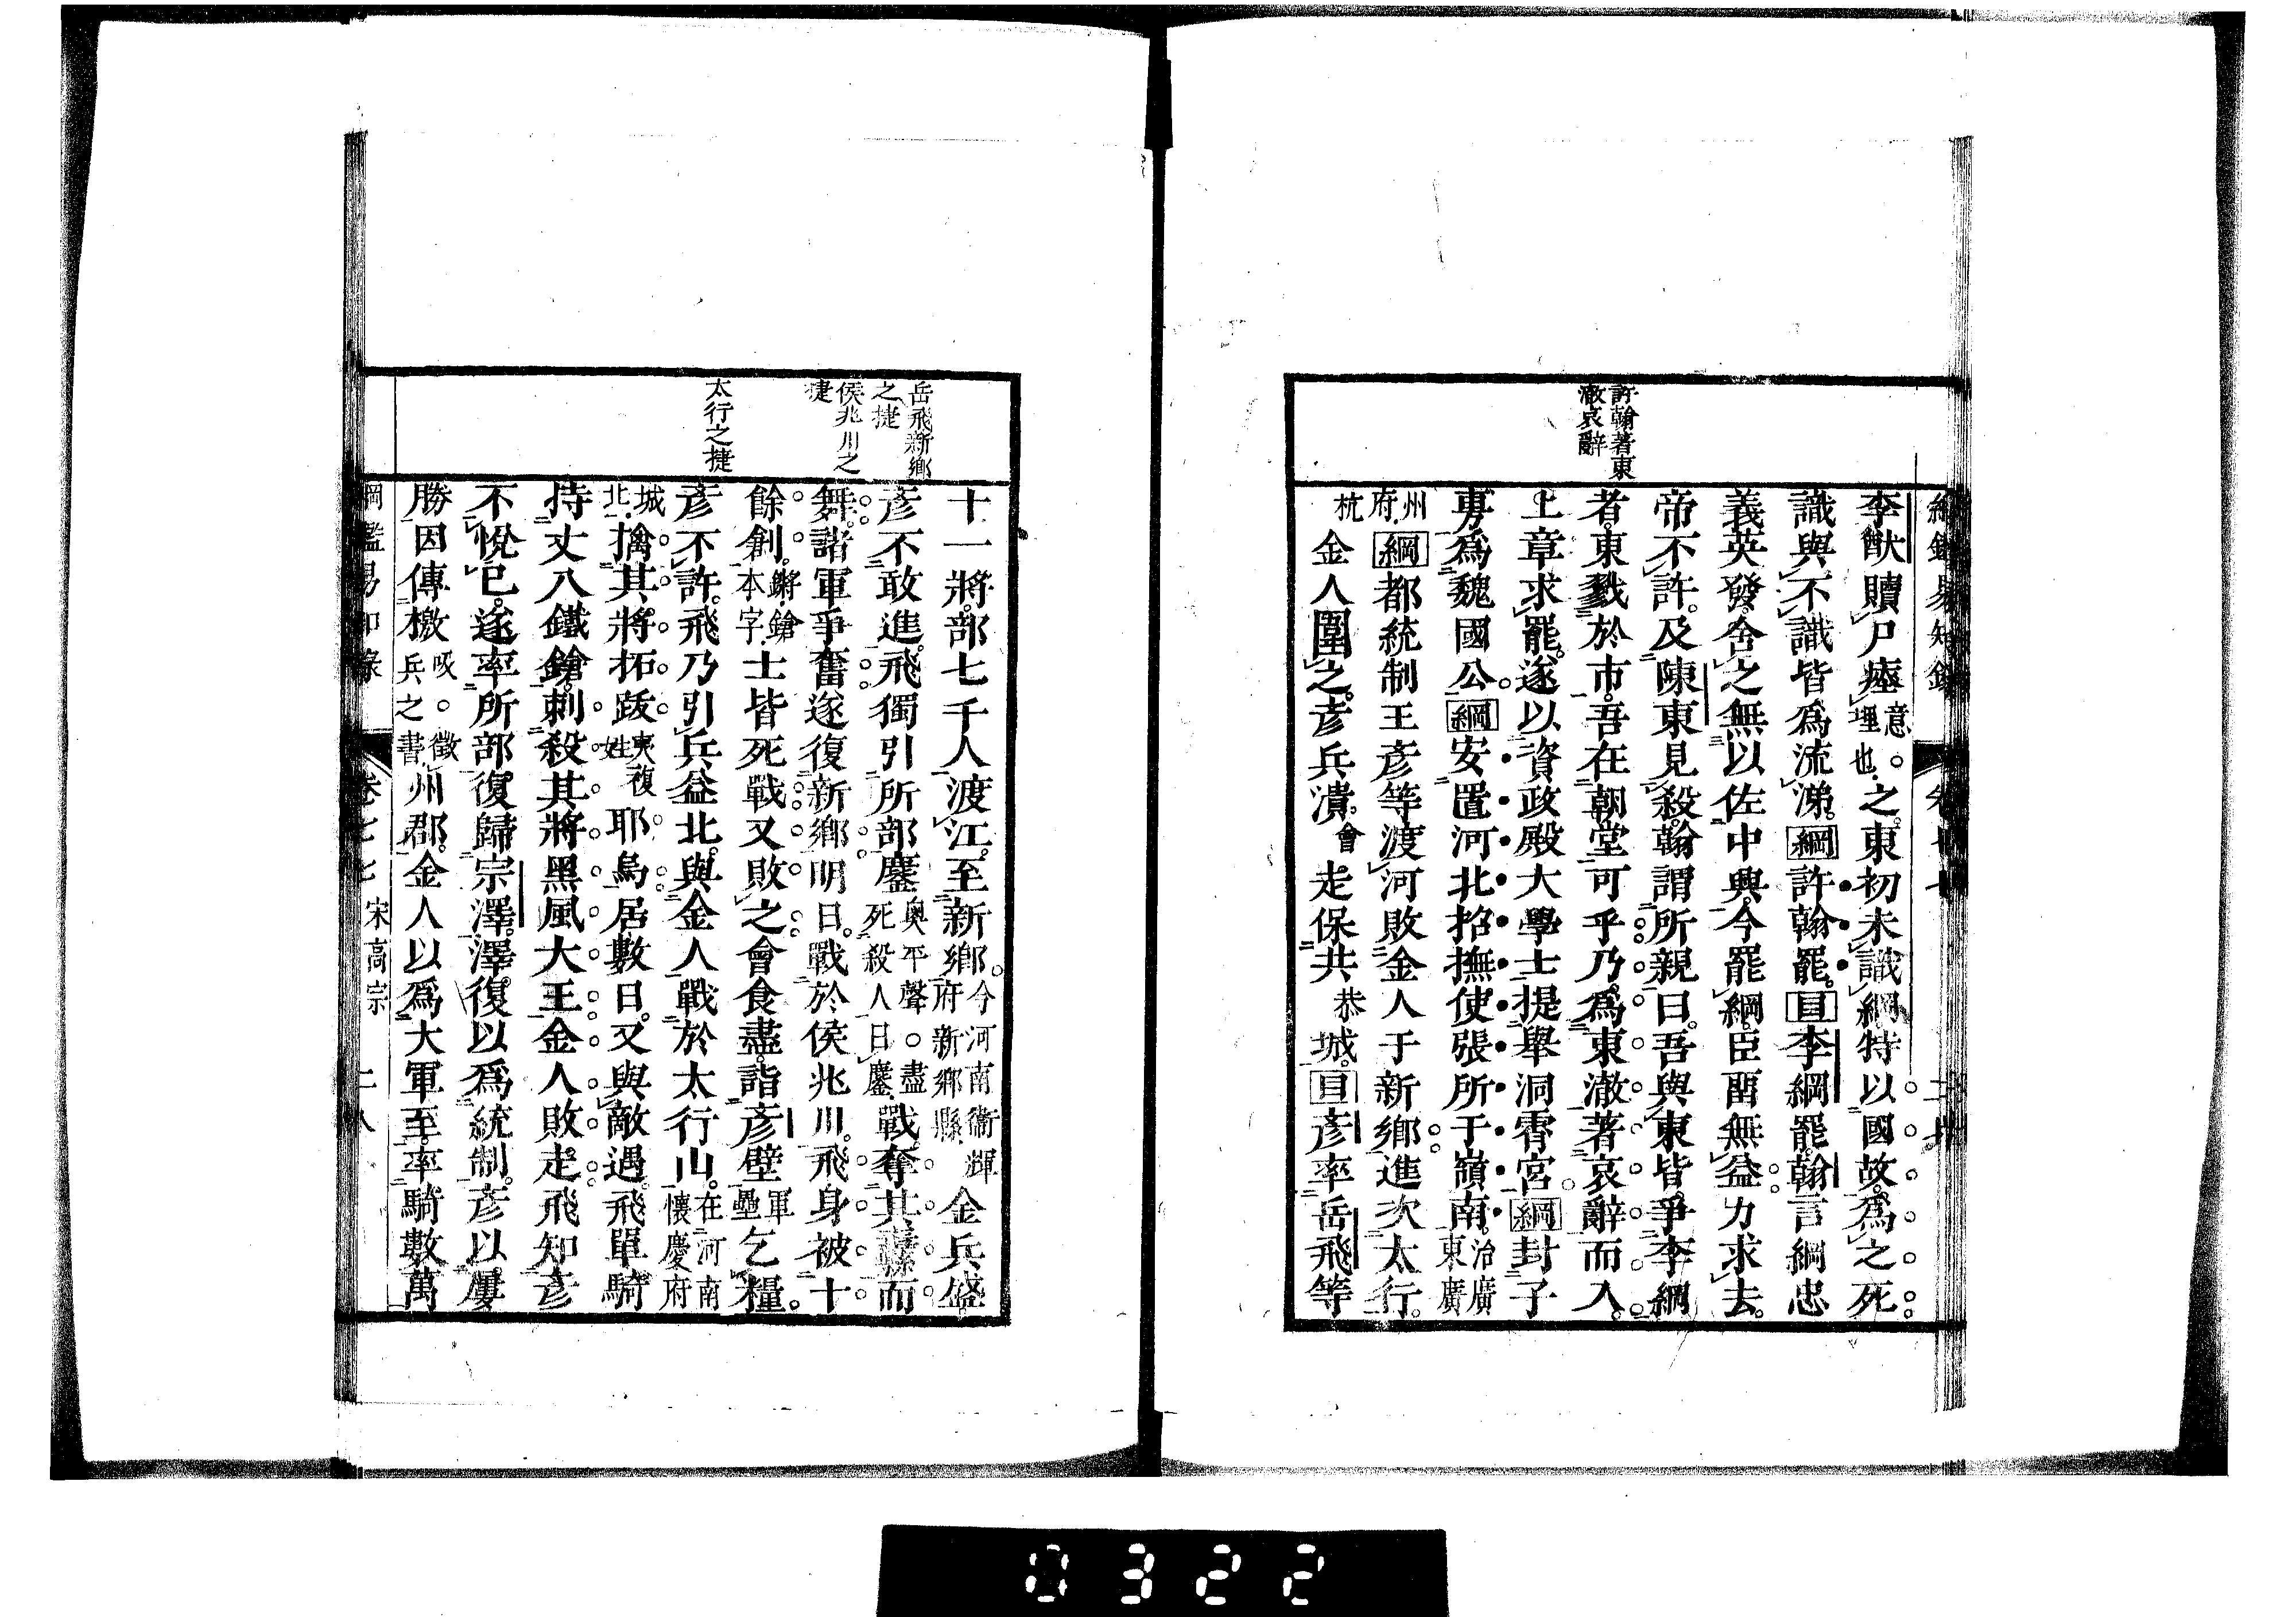 許翰著東
澈哀辭
李猷贖尸瘞意。埋也之東初未識綱特以國故爲之死
識與不識皆爲流涕綱許翰罷目李綱罷翰言綱忠
義英發舍之無以佐中興今罷綱臣留無益力求去
帝不許及陳東見殺翰謂所親曰吾與東皆爭李綱
者東戮於市吾在朝堂可乎乃爲東澈著哀辭而入
上章求罷遂以資政殿大學士提舉洞霄宮綱封子
旉爲魏國公綱安置河北招撫使張所于嶺南治廣東廣
州府綱都統制王彥等渡河敗金人于新鄉進次太行
杭金人圍之彥兵潰會走保共恭城目彥率岳飛等
岳飛新鄉
之捷
侯兆川之
捷
太行之捷
十一將部七千人渡江至新鄉今河南衞輝府新鄉縣金兵盛
彥不敢進飛獨引所部鏖奧平聲。盡死殺人曰鏖戰奪其纛而
舞諸軍爭奮遂復新鄉明日戰於侯兆川飛身被十
餘創鏘鎗本字士皆死戰又敗之會食盡詣彥壁軍壘乞糧
彥不許飛乃引兵益北與金人戰於太行山在河南懷慶府
城北擒其將拓跋夷複姓耶烏居數日又與敵遇飛單騎
持丈八鐵鎗刺殺其將黑風大王金人敗走飛知彥
不悅已遂率所部復歸宗澤澤復以爲統制彥以屢
勝因傳檄吸。徵兵之書州郡金人以爲大軍至率騎數萬
綱鑑易知錄 卷七七 宋高宗 二八
0322